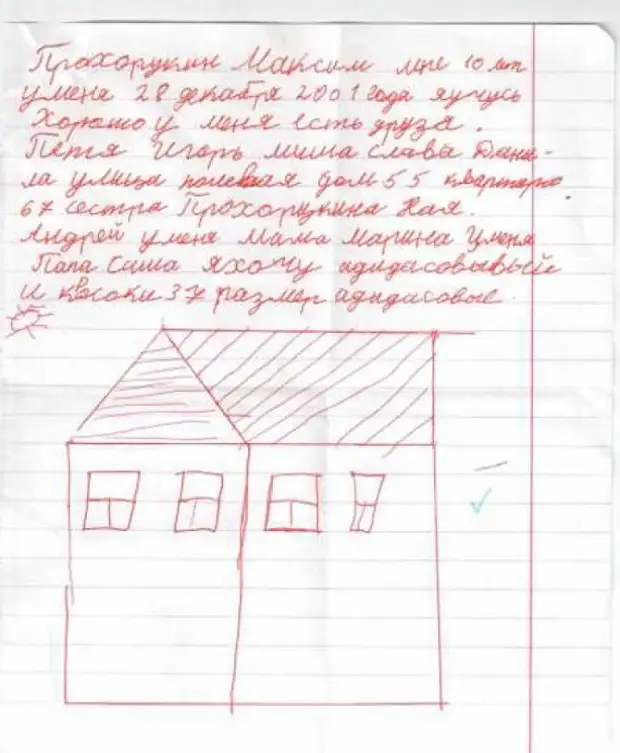 Прохорукин Максим мне 10 лет
у мена 28 декабря 2001 года яучусь
Хорошо у меня есть друза.
Петя Игорь миша слава Дани-
ла улица полевая дом 55 квартера
67 сестра Прохорукина Ная.
Андрей умена мама марина Умена
Папа саша яхочу адидасовывый
и квсоки 37 размер адидасовые.